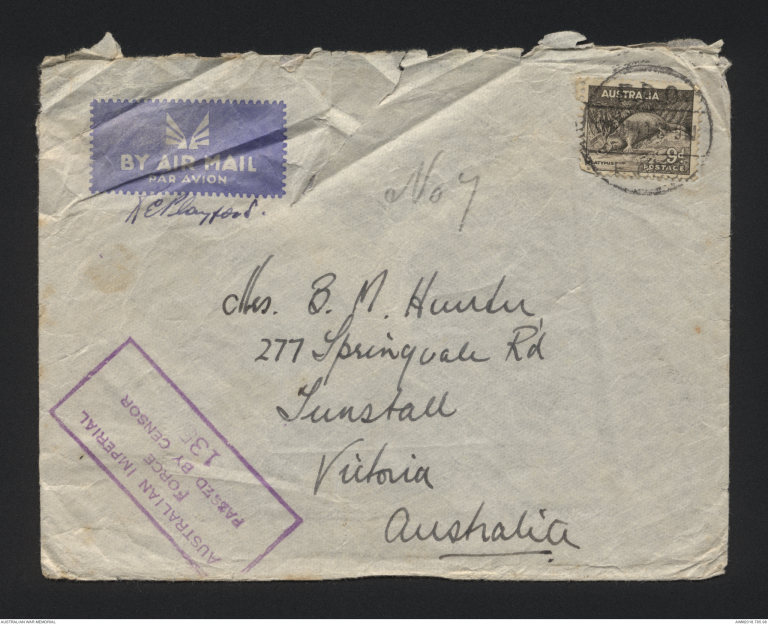 AUSTRALIA
PLATYPUS
9D
POSTAGE
BY AIR MAIL
PAR AVION
No 7
Mrs. B. M. Hunter
277 Springvale Rd
Tunstall
Victoria
Australia
AUSTRALIAN IMPERIAL
FORCE
PASSED BY CENSOR
AUSTRALIAN WAR MEMORIAL